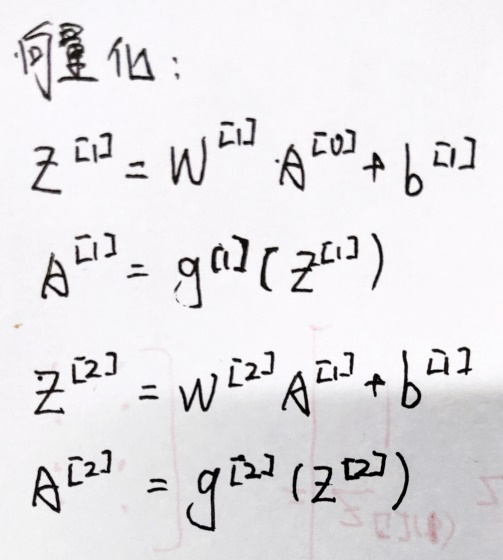 向量化:
Z^[1] = W^[1] A^[0] + b^[1]
A^[1] = g^[1](Z^[1])
Z^[2] = W^[2] A^[1] + b^[1]
A^[2] = g^[2](Z^[2])